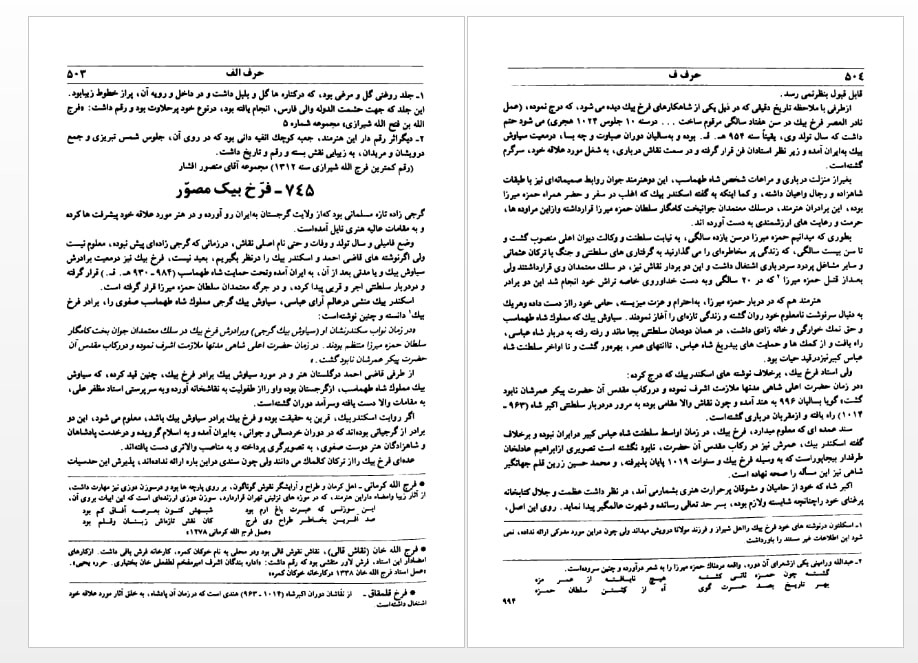 حرف الف ۵۰۳
۱ـ جلد روغنی گل و مرغی بود، که درکناره ها گل و بلبل داشت و در داخل و رویه آن، پراز خطوط زیبابود.
این جلد که جهت حشمت الدوله والی فارس، انجام یافته بود، درنوع خود پرحلاوت بود و رقم داشت: «فرج
الله بن فتح الله شیرازی» مجموعه شماره ۵
۲ـ دیگراثر رقم دار این هنرمند، جعبه کوچک الفیه دانی بود که در روی آن، جلوس شمس تبریزی و جمع
درویشان و مریدان، به زیبایی نقش بسته و رقم و تاریخ داشت.
(رقم کمترین فرج الله شیرازی سنه ۱۳۱۲) مجموعه آقای منصور افشار
۷۴۵ ـ فرّخ بیک مصوّر
گرجی زاده تازه مسلمانی بود که‌از ولایت گرجستان به‌ایران رو آورده و در هنر مورد علاقه خود پیشرفت ها کرده
و به مقامات عالیه هنری نایل آمده‌است.
وضع فامیلی و سال تولد و وفات و حتی نام اصلی نقاش، درزمانی که گرجی زاده‌ای پیش نبوده، معلوم نیست
ولی اگرنوشته های قاضی احمد و اسکندر بیک را درنظر بگیریم، بعید نیست، فرخ بیک نیز درمعیت برادرش
سیاوش بیک و یا مدتی بعد از آن، به ایران آمده وتحت حمایت شاه طهماسب (۹۸۴ - ۹۳۰ هـ. ق.) قرار گرفته
و دردربار سلطنتی اجر و قربی پیدا کرده، و در جرگه معتمدان سلطان حمزه میرزا قرار گرفته است.
اسکندر بیک منشی درعالم آرای عباسی، سیاوش بیک گرجی مملوک شاه طهماسب صفوی را، برادر فرخ
بیک۱ دانسته و چنین نوشته‌است:
«در زمان نواب سکندرنشان او (سیاوش بیک گرجی) وبرادرش فرخ بیک در سلک معتمدان جوان بخت کامگار
سلطان حمزه میرزا منتظم بودند. در زمان حضرت اعلی شاهی مدتها ملازمت اشرف نموده و دررکاب مقدس آن
حضرت پیکر عمرشان نابود گشت.»
از طرفی قاضی احمد درگلستان هنر و در مورد سیاوش بیک برادر فرخ بیک، چنین قید کرده، که سیاوش
بیک مملوک شاه طهماسب، ازگرجستان بوده واو رااز طفولیت به نقاشخانه آورده و به سرپرستی استاد مظفر علی،
به مقامات والا دست یافته وسرآمد دوران گشته‌است.
اگر روایت اسکندربیک، قرین به حقیقت بوده و فرخ بیک برادر سیاوش بیک باشد، معلوم می شود، این دو
برادر از گرجیانی بوده‌اند که در دوران خردسالی و جوانی، به‌ایران آمده و به اسلام گرویده و درخدمت پادشاهان
و شاهزادگان هنر دوست صفوی، به تصویرگری پرداخته و به مناصب والاتری دست یافته‌اند.
عده‌ای فرخ بیک رااز ترکان کالماک می دانند ولی چون سندی دراین باره ارائه نداده‌اند، پذیرش این حدسیات
● فرج الله کرمانی ـ اهل کرمان و طراح و آرایشگر نقوش گوناگون، بر روی پارچه ها بود و درسوزن دوزی نیز مهارت داشت،
از آثار زیبا وامضاء داراین هنرمند، که در موزه های تزئینی تهران قرارداره، سوزن دوزی ارزنده‌ای است که این ابیات برروی آن،
ایـن سوزنـی که عبـرت باغ ارم بود شبـهش کنـون بعـرصـه آفـاق کم بود
صد آفـریـن بخـاطـر طراح وی فرج کان نقش تازه‌اش زبنـان وقـلم بود
«عمل فرج الله کرمانی ۱۲۷۸»
● فرج الله خان (نقاش قالی)، نقاش نقوش قالی بود ودر محلی به نام خوکان کمره، کارخانه فرش بافی داشت. ازکارهای
امضادار این استاد، فرش لاور منقشی بود که رقم داشت: «اداره بندگان اشرف امیرمفخم لطفعلی خان بختیاری. حرره یحیی».
«عمل استاد فرج الله خان ۱۳۳۸ درکارخانه خوکان کمره»
● فرخ قلمقاق ـ از نقاشان دوران اکبرشاه (۱۰۱۴ - ۹۶۳) هندی است که درزمان آن پادشاه، به خلق آثار مورد علاقه خود
اشتغال داشته‌است.
۵۰۴ حرف ف
قابل قبول بنظرنمی رسد.
ازطرفی با ملاحظه تاریخ دقیقی که در ذیل یکی از شاهکارهای فرخ بیک دیده می‌شود، که درج نموده، (عمل
نادر العصر فرخ بیک در سن هفتاد سالگی مرقوم ساخت ... درسنه ۱۰ جلوس ۱۰۲۴ هجری) می شود حتم
داشت که سال تولد وی، یقیناً سنه ۹۵۴ هـ. ق. بوده و به‌سالیان دوران صباوت و چه بسا، درمعیت سیاوش
بیک به‌ایران آمده و زیر نظر استادان فن قرار گرفته و در سمت نقاش درباری، به شغل مورد علاقه خود، سرگرم
گشته‌است.
بغیراز منزلت درباری و مراعات شخص شاه طهماسب، این دوهنرمند جوان روابط صمیمانه‌ای نیز با طبقات
شاهزاده و رجال واعیان داشته، و کما اینکه به گفته اسکندر بیک که اغلب در سفر و حضر همراه حمزه میرزا
بوده، این برادران هنرمند، درسلک معتمدان جوانبخت کامگار سلطان حمزه میرزا قرارداشته وازاین مراوده ها،
حرمت و رعایت های ارزشمندی به دست آورده اند.
بطوری که میدانیم حمزه میرزا درسن یازده سالگی، به نیابت سلطنت و وکالت دیوان اعلی منصوب گشت و
تا سن بیست سالگی، که زندگی پر مخاطره‌ای را می گذارنید به گرفتاری های سلطنتی و جنگ با ترکان عثمانی
و سایر مشاغل پردرد سردرباری اشتغال داشت و این دو بردار نقاش نیز، در سلک معتمدان وی قرارداشتند ولی
بعداز قتل حمزه میرزا ۲ که در ۲۰ سالگی وبه دست خداوروی خاصه تراش خود انجام شد این دو برادر
هنرمند هم که در دربار حمزه میرزا، به‌احترام و عزت میزیسته، حامی خود رااز دست داده وهریک
به دنبال سرنوشت نامعلوم خود روان گشته و زندگی تازه‌ای را آغاز نمودند. سیاوش بیک که مملوک شاه طهماسب
و حق نمک خوارگی و خانه زادی داشت، در همان دودمان سلطنتی بجا ماند و رفته رفته به دربار شاه عباسی،
راه یافت و از کمک ها و حمایت های بیدریغ شاه عباس، تاانتهای عمر، بهره‌ور گشت و تا اواخر سلطنت شاه
عباس کبیرنیزدرقید حیات بود.
ولی استاد فرخ بیک، برخلاف نوشته های اسکندر بیک که درج کرده:
«در زمان حضرت اعلی شاهی مدتها ملازمت اشرف نموده و دررکاب مقدس آن حضرت پیکر عمرشان نابود
گشت» گویا بسالیان ۹۹۶ به هند آمده و چون نقاش والا مقامی بوده به مرور دردربار سلطنتی اکبر شاه (۹۶۳ ـ
۱۰۱۴) راه یافته و ازمقربان درباری گشته‌است.
سند عمده ای که معلوم میدارد، فرخ بیک، در زمان اواسط سلطنت شاه عباس کبیر درایران نبوده و برخلاف
گفته اسکندر بیک، عمرش نیز در رکاب مقدس آن حضرت، نابود نگشته است تصویری ازابراهیم عادلخان
طرفدار بیجاپوراست که به وسیله فرخ بیک و سنوات ۱۰۱۹ پایان پذیرفته، و محمد حسین زرین قلم جهانگیر
شاهی نیز این مسأله را صحه نهاده است.
اکبر شاه که خود از حامیان و مشوقان پرحرارت هنری بشمارمی آمد، در نظر داشت عظمت و جلال کتابخانه
پرغنای خود راچنانچه شایسته ولازم بوده، بسر حد تعالی رسانده و شهرت عالمگیر پیدا نماید. روی این اصل،
۱ـ اسکلتون درنوشته های خود فرخ بیک رااهل شیراز و فرزند مولانا درویش میداند ولی چون دراین مورد مدرکی ارائه نداده، نمی
شود این اطلاعات غیر مستند را باورداشت
۲ـ عبدالله ورامینی یکی ازشعرای آن دوره، واقعه دردناک حمزه میرزا را به شعر درآورده و چنین سروده‌است.
گشتـه چون حمزه ثانـی کشتـه هیـچ نایـافتـه از عمـر مزه
بهـر تاریـخ بصـد حسـرت گوی آه از کشتـن سلطان حمـزه
۹۹۴